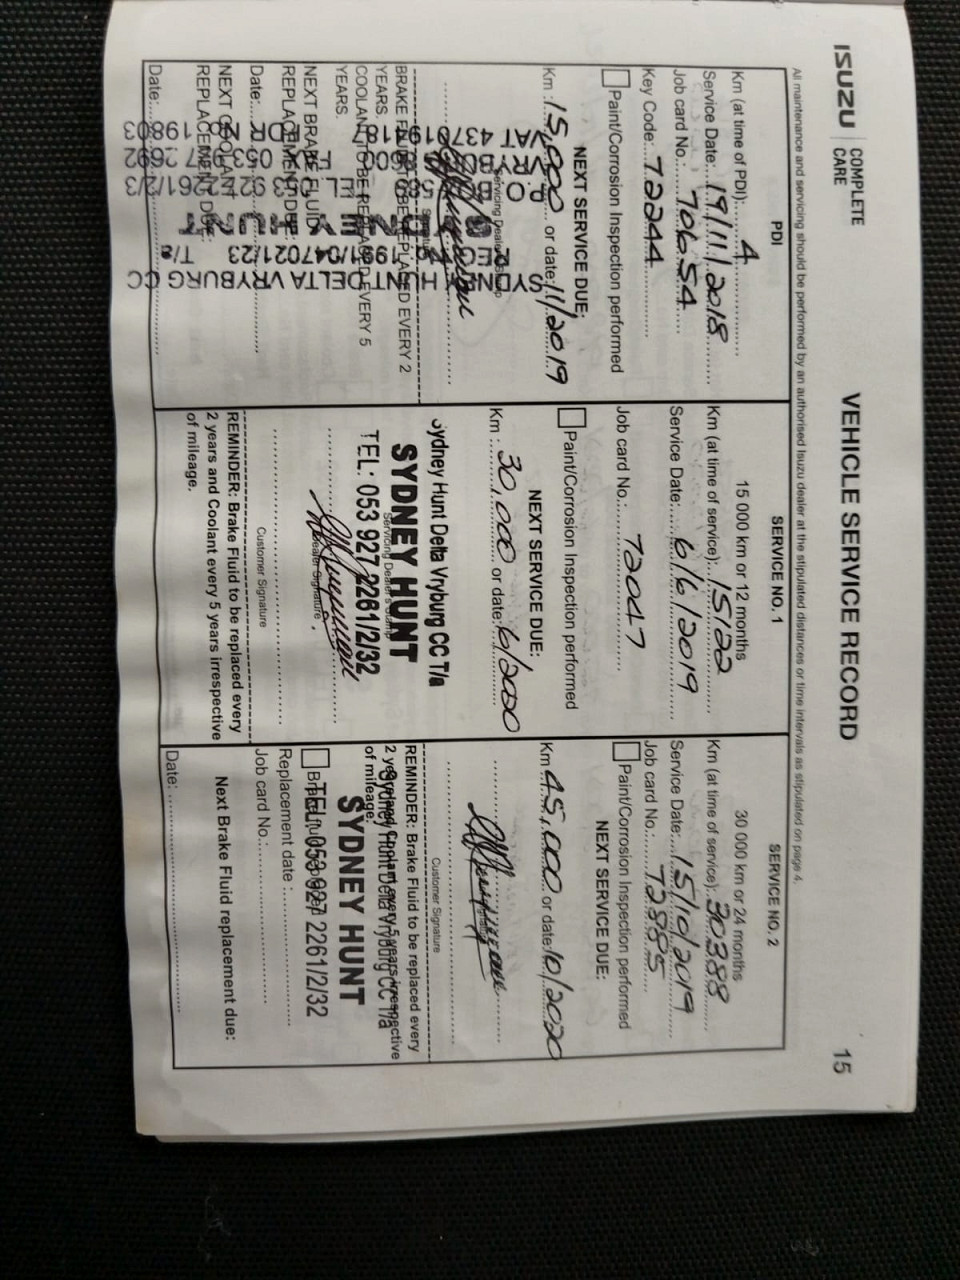 ISUZU
COMPLETE
CARE
VEHICLE SERVICE RECORD
15
All maintenance and servicing should be performed by an authorised Isuzu dealer at the stipulated distances or time intervals as stipulated on page 4.
PDI
Km (at time of PDI): 4
Service Date: 19/11/2018
Job card No.: 70654
Key Code: 72244
Paint/Corrosion Inspection performed
NEXT SERVICE DUE:
Km : 15,000 or date: 11/2019
SYDNEY HUNT DELTA VRYBURG CC
REG 1991/047021/23 T/a
SYDNEY HUNT
P.O. BOX 58 TEL 053 927 2261/2/3
VRYBURG 8600 FAX 053 927 3692
VAT 4370191187
BRAKE FLUID TO BE REPLACED EVERY 2
YEARS.
COOLANT TO BE REPLACED EVERY 5
YEARS.
NEXT BRAKE FLUID
REPLACEMENT DUE:
Date:
NEXT COOLANT
REPLACEMENT DUE:
Date:
SERVICE NO. 1
15 000 km or 12 months
Km (at time of service): 15122
Service Date: 6/6/2019
Job card No.: 72047
Paint/Corrosion Inspection performed
NEXT SERVICE DUE:
Km : 30,000 or date: 6/2020
Sydney Hunt Delta Vryburg CC T/a
SYDNEY HUNT
Servicing Dealer's Stamp
TEL: 053 927 2261/2/32
Dealer Signature
Customer Signature
REMINDER: Brake Fluid to be replaced every
2 years and Coolant every 5 years irrespective
of mileage.
SERVICE NO. 2
30 000 km or 24 months
Km (at time of service): 30388
Service Date: 15/10/2019
Job card No.: 72885
Paint/Corrosion Inspection performed
NEXT SERVICE DUE:
Km 45,000 or date: 10/2020
Customer Signature
REMINDER: Brake Fluid to be replaced every
2 years and Coolant every 5 years irrespective
of mileage.
Sydney Hunt Delta Vryburg CC T/a
SYDNEY HUNT
TEL: 053 927 2261/2/32
Replacement date :
Job card No.:
Next Brake Fluid replacement due:
Date: